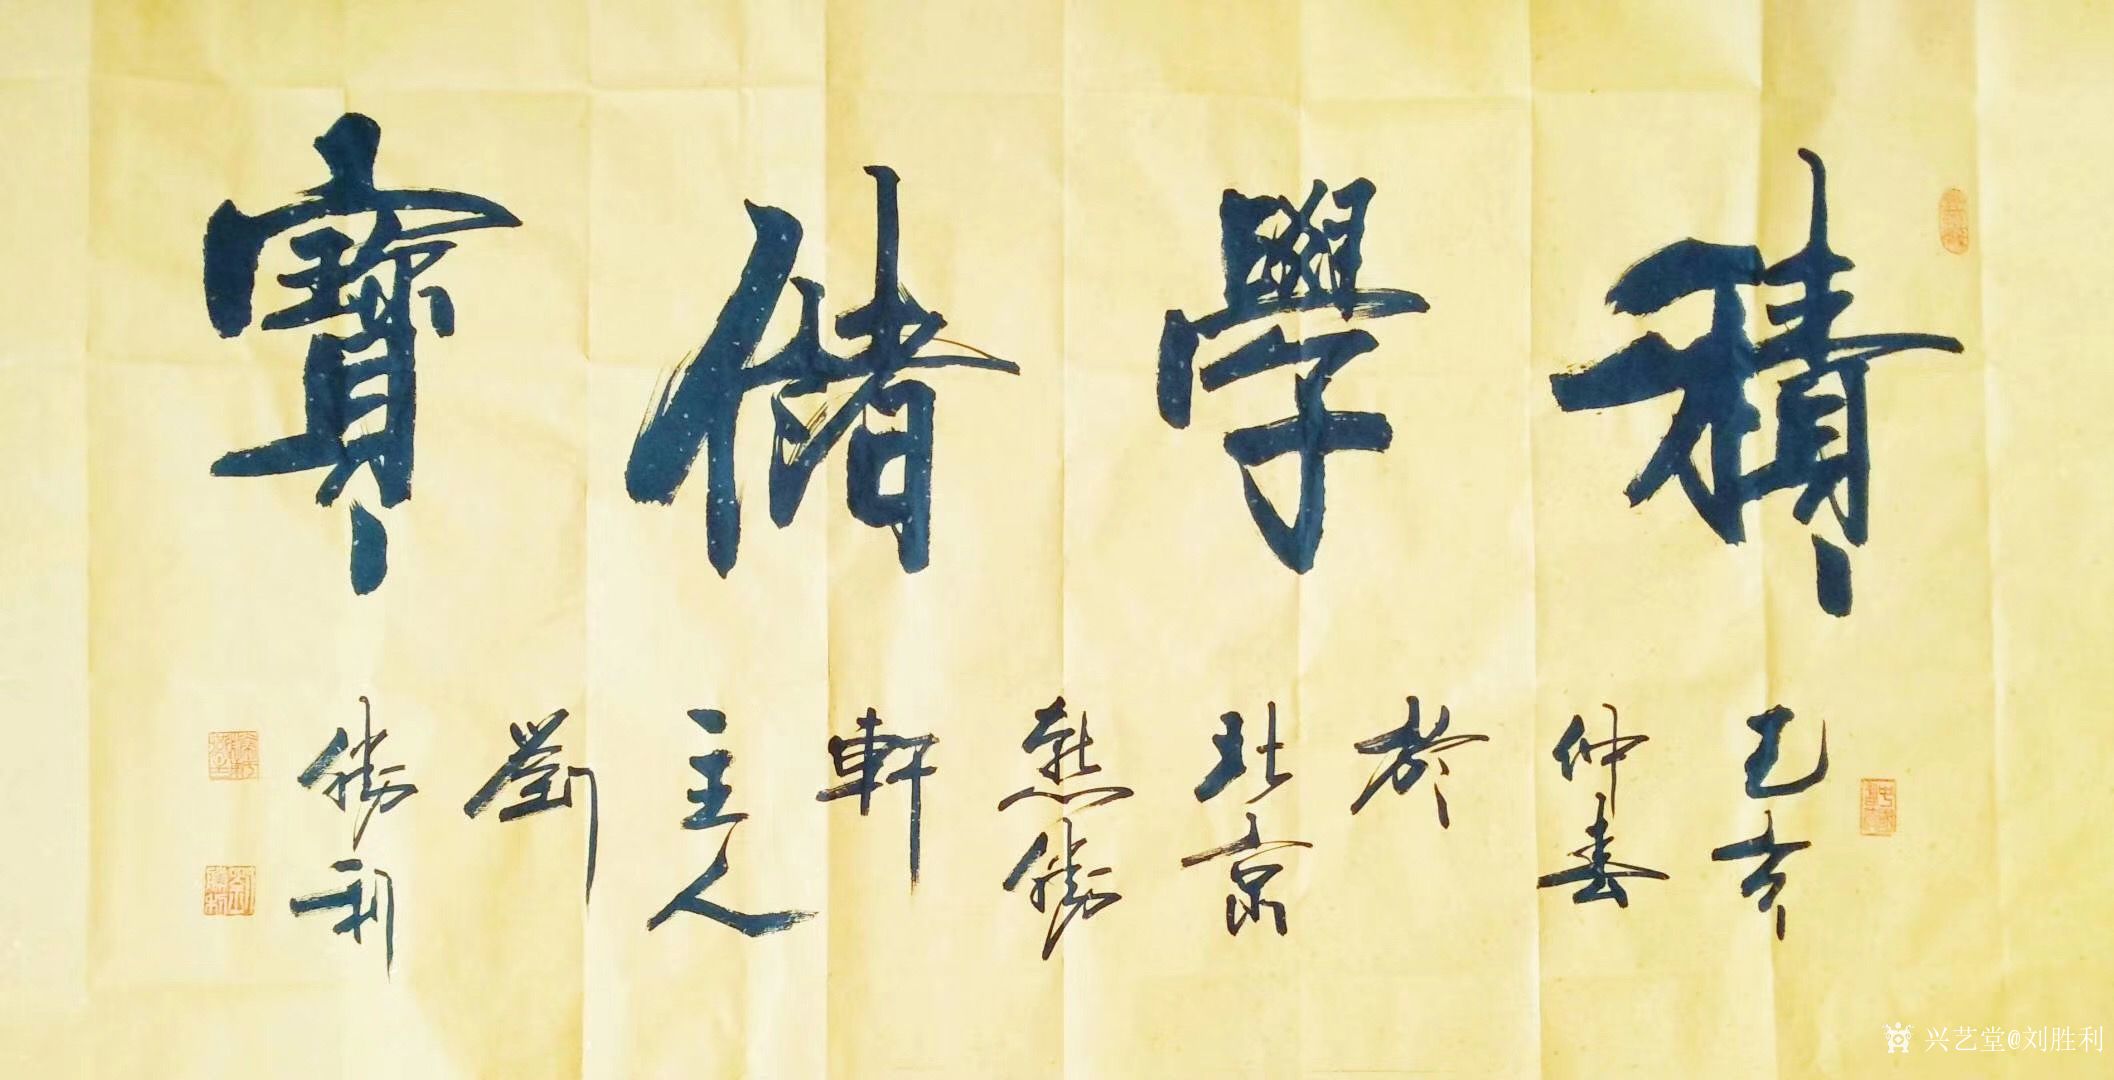 積學儲寶
己亥仲春於北京熱勝軒主人劉勝利
兴艺堂@刘胜利